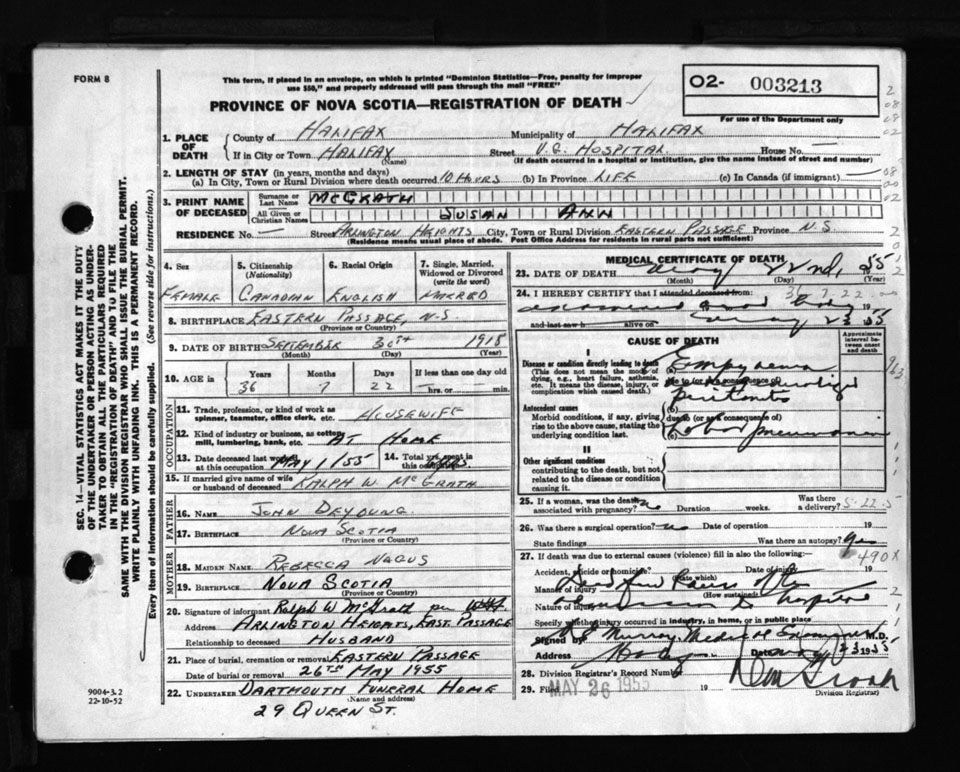 FORM 8
This form, if placed in an envelope, on which is printed "Dominion Statistics—Free, penalty for improper
use $50," and properly addressed will pass through the mail "FREE"
PROVINCE OF NOVA SCOTIA—REGISTRATION OF DEATH
O2- 003213
For use of the Department only
1. PLACE OF DEATH County of HALIFAX Municipality of HALIFAX
If in City or Town HALIFAX (Name) Street V.G. HOSPITAL House No. —
(If death occurred in a hospital or institution, give the name instead of street and number)
2. LENGTH OF STAY (in years, months and days)
(a) In City, Town or Rural Division where death occurred 10 HOURS (b) In Province LIFE (c) In Canada (if immigrant) —
3. PRINT NAME OF DECEASED Surname or Last Name McGRATH
All Given or Christian Names SUSAN ANN
RESIDENCE No. — Street ARLINGTON HEIGHTS City, Town or Rural Division EASTERN PASSAGE Province N.S.
(Residence means usual place of abode. Post Office Address for residents in rural parts not sufficient)
4. Sex FEMALE
5. Citizenship (Nationality) CANADIAN
6. Racial Origin ENGLISH
7. Single, Married, Widowed or Divorced (write the word) MARRIED
8. BIRTHPLACE EASTERN PASSAGE, N.S.
(Province or Country)
9. DATE OF BIRTH SEPTEMBER 30TH 1918
(Month) (Day) (Year)
10. AGE in Years Months Days If less than one day old
36 7 22 — hrs. or — min.
OCCUPATION
11. Trade, profession, or kind of work as spinner, teamster, office clerk, etc. HOUSEWIFE
12. Kind of industry or business, as cotton mill, lumbering, bank, etc. AT HOME
13. Date deceased last worked at this occupation MAY 1/55 14. Total yrs. spent in this occup.
15. If married give name of wife or husband of deceased RALPH W. McGRATH
FATHER
16. NAME JOHN DEYOUNG
17. BIRTHPLACE NOVA SCOTIA
(Province or Country)
MOTHER
18. MAIDEN NAME REBECCA NAGUS
19. BIRTHPLACE NOVA SCOTIA
(Province or Country)
20. Signature of informant Ralph W McGrath per
Address ARLINGTON HEIGHTS, EAST. PASSAGE
Relationship to deceased HUSBAND
21. Place of burial, cremation or removal EASTERN PASSAGE
Date of burial or removal 26TH MAY 1955
22. UNDERTAKER DARTMOUTH FUNERAL HOME
(Name and address)
29 QUEEN ST.
MEDICAL CERTIFICATE OF DEATH
23. DATE OF DEATH May 22nd, 55
(Month) (Day) (Year)
24. I HEREBY CERTIFY that I attended deceased from: 36 7 22
and last saw h alive on
CAUSE OF DEATH
Approximate interval between onset and death
I
Disease or condition directly leading to death (a) Empyema
(This does not mean the mode of dying, e.g., heart failure, asthenia, etc. It means the disease, injury, or complication which caused death.)
due to (or as a consequence of)
peritonitis
Antecedent causes (b)
Morbid conditions, if any, giving rise to the above cause, stating the underlying condition last.
due to (or as consequence of)
(c) Lobar pneumonia
II
Other significant conditions
contributing to the death, but not related to the disease or condition causing it.
25. If a woman, was the death associated with pregnancy? no Duration weeks. Was there a delivery?
26. Was there a surgical operation? no Date of operation 19
State findings Was there an autopsy? yes
27. If death was due to external causes (violence) fill in also the following:—
490X
Accident, suicide or homicide? (State which) Date of injury 19
Manner of injury (How sustained)
Nature of injury
Specify whether injury occurred in industry, in home, or in public place
Signed by Murray, Medical Examiner M.D.
Address Date May 23 1955
28. Division Registrar's Record Number
29. Filed MAY 26 1955 19
Division Registrar
SEC. 14—VITAL STATISTICS ACT MAKES IT THE DUTY
OF THE UNDERTAKER OR PERSON ACTING AS UNDER-
TAKER TO OBTAIN ALL THE PARTICULARS REQUIRED
IN THE "REGISTRATION OF DEATH" AND TO FILE THE
SAME WITH THE DIVISION REGISTRAR WHO SHALL ISSUE THE BURIAL PERMIT.
WRITE PLAINLY WITH UNFADING INK. THIS IS A PERMANENT RECORD.
Every item of information should be carefully supplied. (See reverse side for instructions.)
9004-3.2
22-10-52